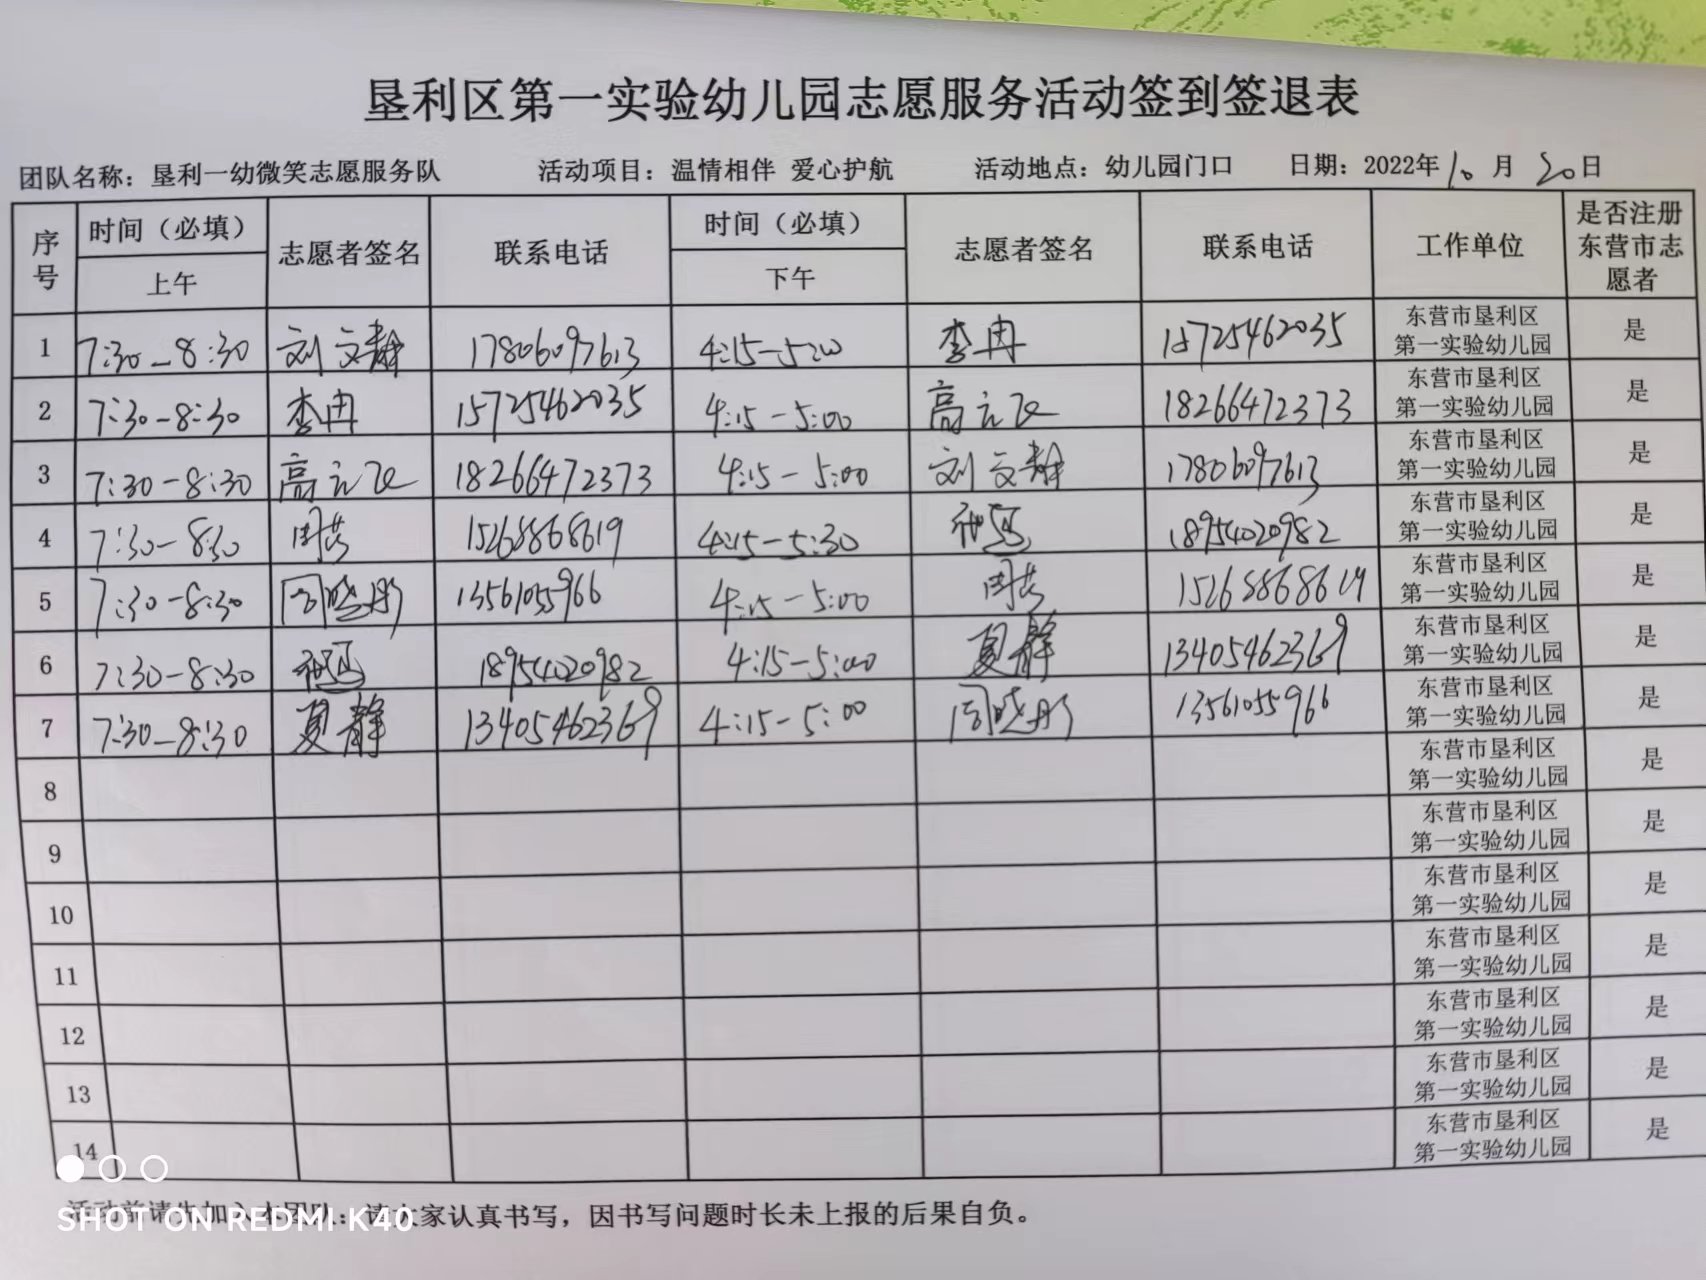 垦利区第一实验幼儿园志愿服务活动签到签退表
团队名称：垦利一幼微笑志愿服务队 活动项目：温情相伴 爱心护航 活动地点：幼儿园门口 日期：2022年10月20日
序号 时间（必填） 上午 志愿者签名 联系电话 时间（必填） 下午 志愿者签名 联系电话 工作单位 是否注册东营市志愿者
1 7:30-8:30 刘文静 17806097613 4:15-5:00 李冉 15725462035 东营市垦利区第一实验幼儿园 是
2 7:30-8:30 李冉 15725462035 4:15-5:00 高元飞 18266472373 东营市垦利区第一实验幼儿园 是
3 7:30-8:30 高元飞 18266472373 4:15-5:00 刘文静 17806097613 东营市垦利区第一实验幼儿园 是
4 7:30-8:30 周芸 15268868619 4:15-5:30 18954020982 东营市垦利区第一实验幼儿园 是
5 7:30-8:30 周晓彤 13561055966 4:15-5:00 周芸 15268868619 东营市垦利区第一实验幼儿园 是
6 7:30-8:30 18954020982 4:15-5:00 夏静 13405462369 东营市垦利区第一实验幼儿园 是
7 7:30-8:30 夏静 13405462369 4:15-5:00 周晓彤 13561055966 东营市垦利区第一实验幼儿园 是
8 东营市垦利区第一实验幼儿园 是
9 东营市垦利区第一实验幼儿园 是
10 东营市垦利区第一实验幼儿园 是
11 东营市垦利区第一实验幼儿园 是
12 东营市垦利区第一实验幼儿园 是
13 东营市垦利区第一实验幼儿园 是
14 东营市垦利区第一实验幼儿园 是
活动前请先加入本团队；请大家认真书写，因书写问题时长未上报的后果自负。
SHOT ON REDMI K40